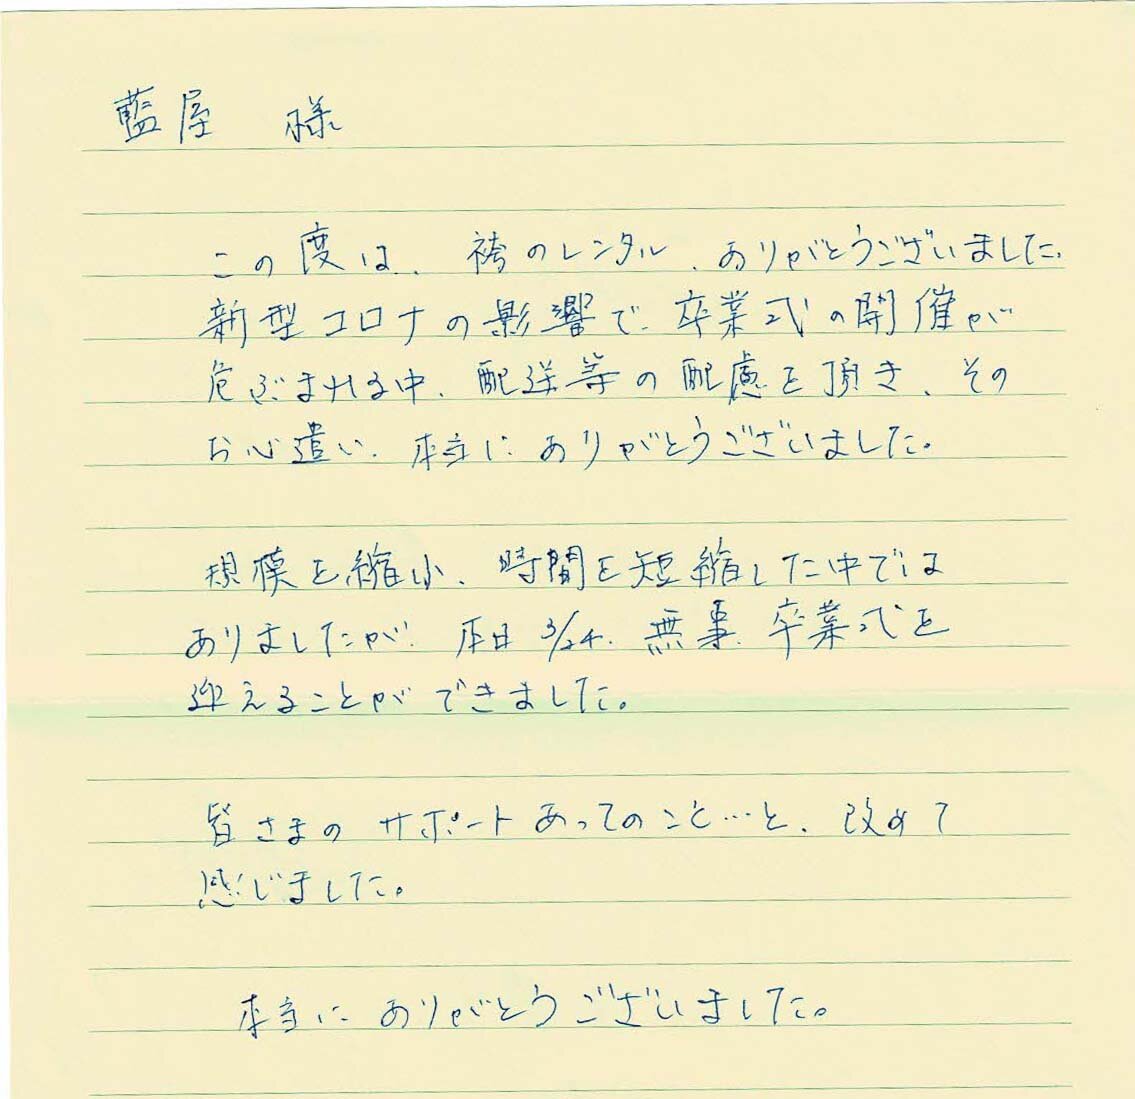 藍屋 様
この度は、袴のレンタル、ありがとうございました。
新型コロナの影響で、卒業式の開催が
危ぶまれる中、配送等の配慮を頂き、その
お心遣い、本当にありがとうございました。
規模を縮小、時間を短縮した中では
ありましたが、本日3/24、無事、卒業式を
迎えることができました。
皆さまのサポートあってのこと…と、改めて
感じました。
本当にありがとうございました。